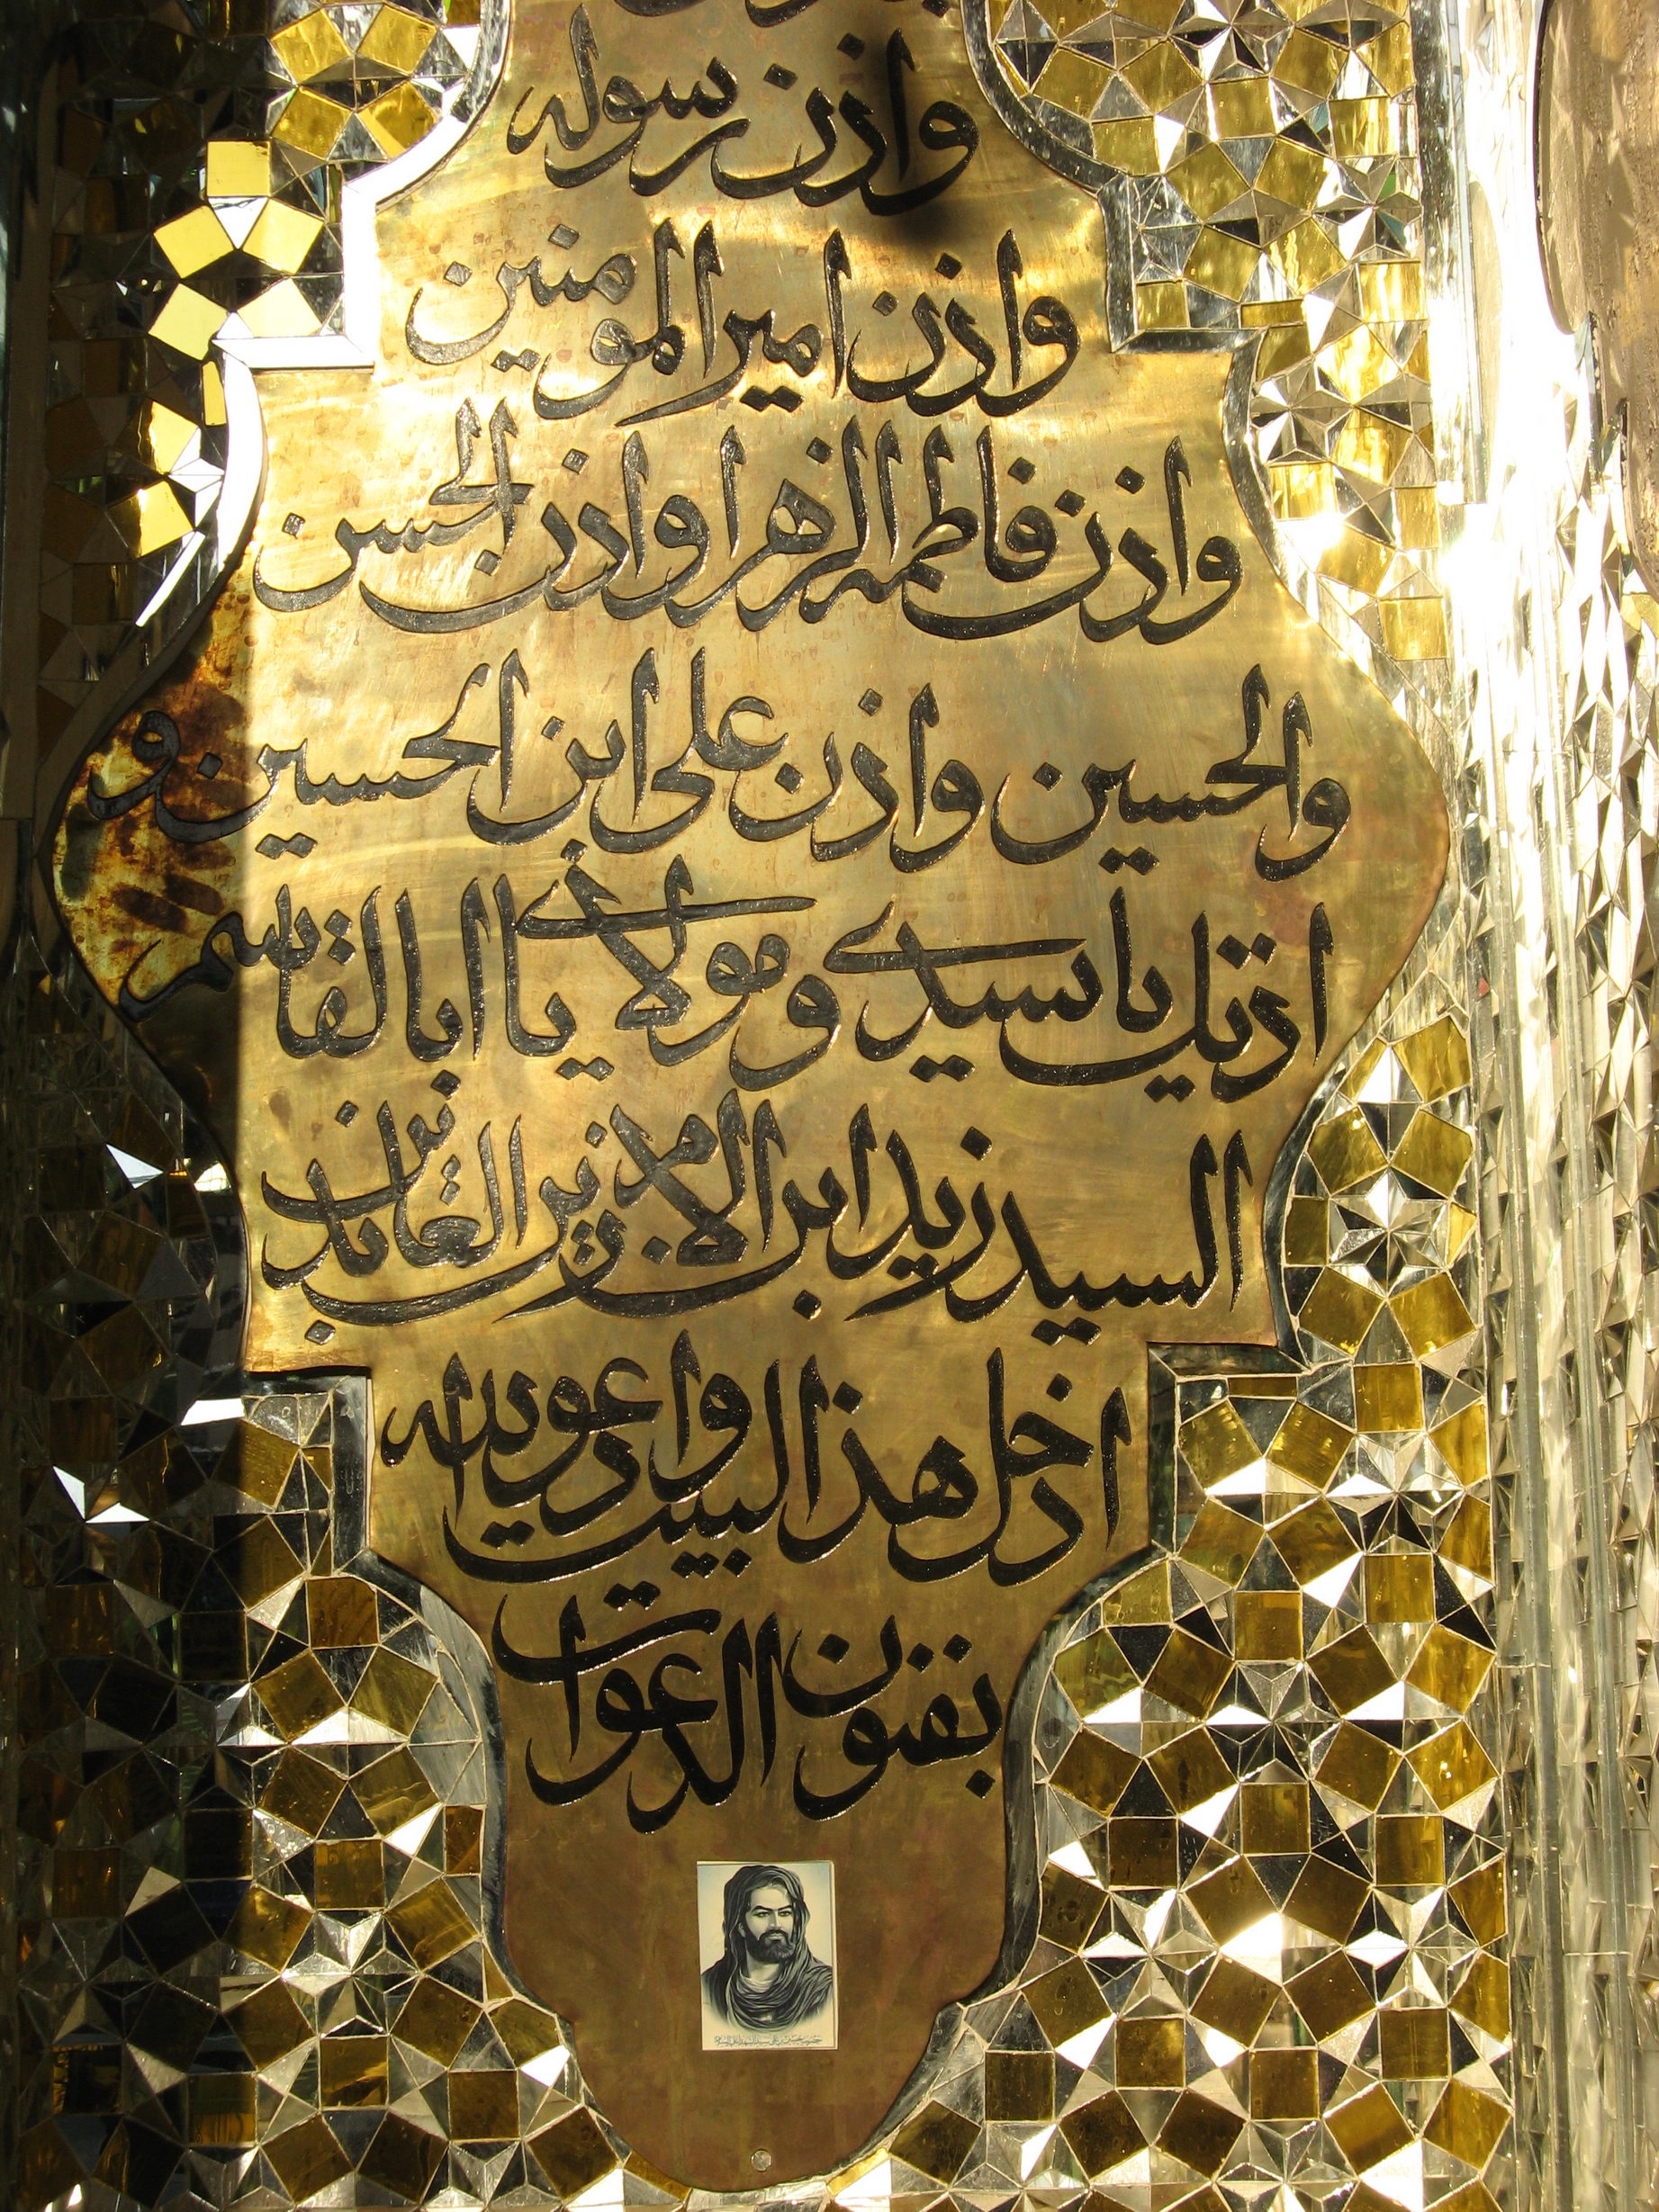 واذن رسوله
واذن امير المومنين
واذن فاطمه الزهرا واذن الحسن
والحسين واذن علی ابن الحسين و
اذنك يا سيدی و مولای يا ابا القاسم
السيد زيد ابن الامام زين العابدين
ادخل هذا البيت وادعو الله
بفنون الدعوات